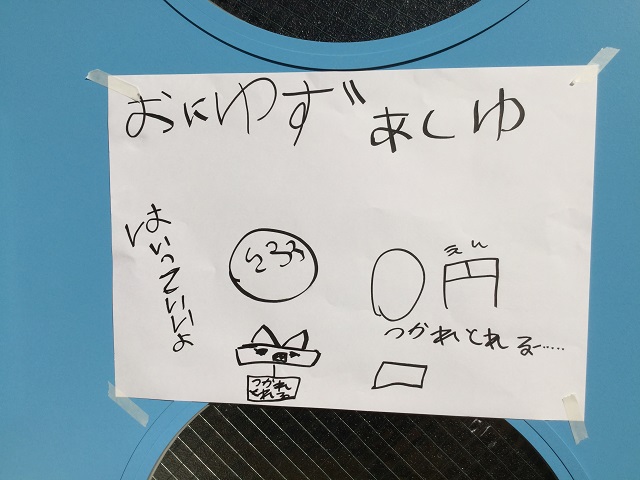 おにゆず あしゆ
はいっていいよ
0円
えん
つかれとれるー……
つかれ
とれる